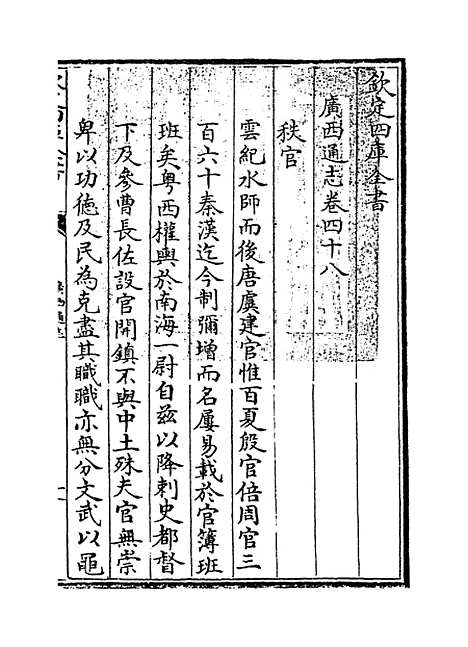 欽定四庫全書
廣西通志卷四十八
秩官
雲紀水師而後唐虞建官惟百夏殷官倍周官三
百六十秦漢迄今制彌增而名屢易載於官簿班
班矣粵西權輿於南海一尉自兹以降刺史都督
下及參曹長佐設官開鎮不與中土殊夫官無崇
卑以功德及民為克盡其職職亦無分文武以黽